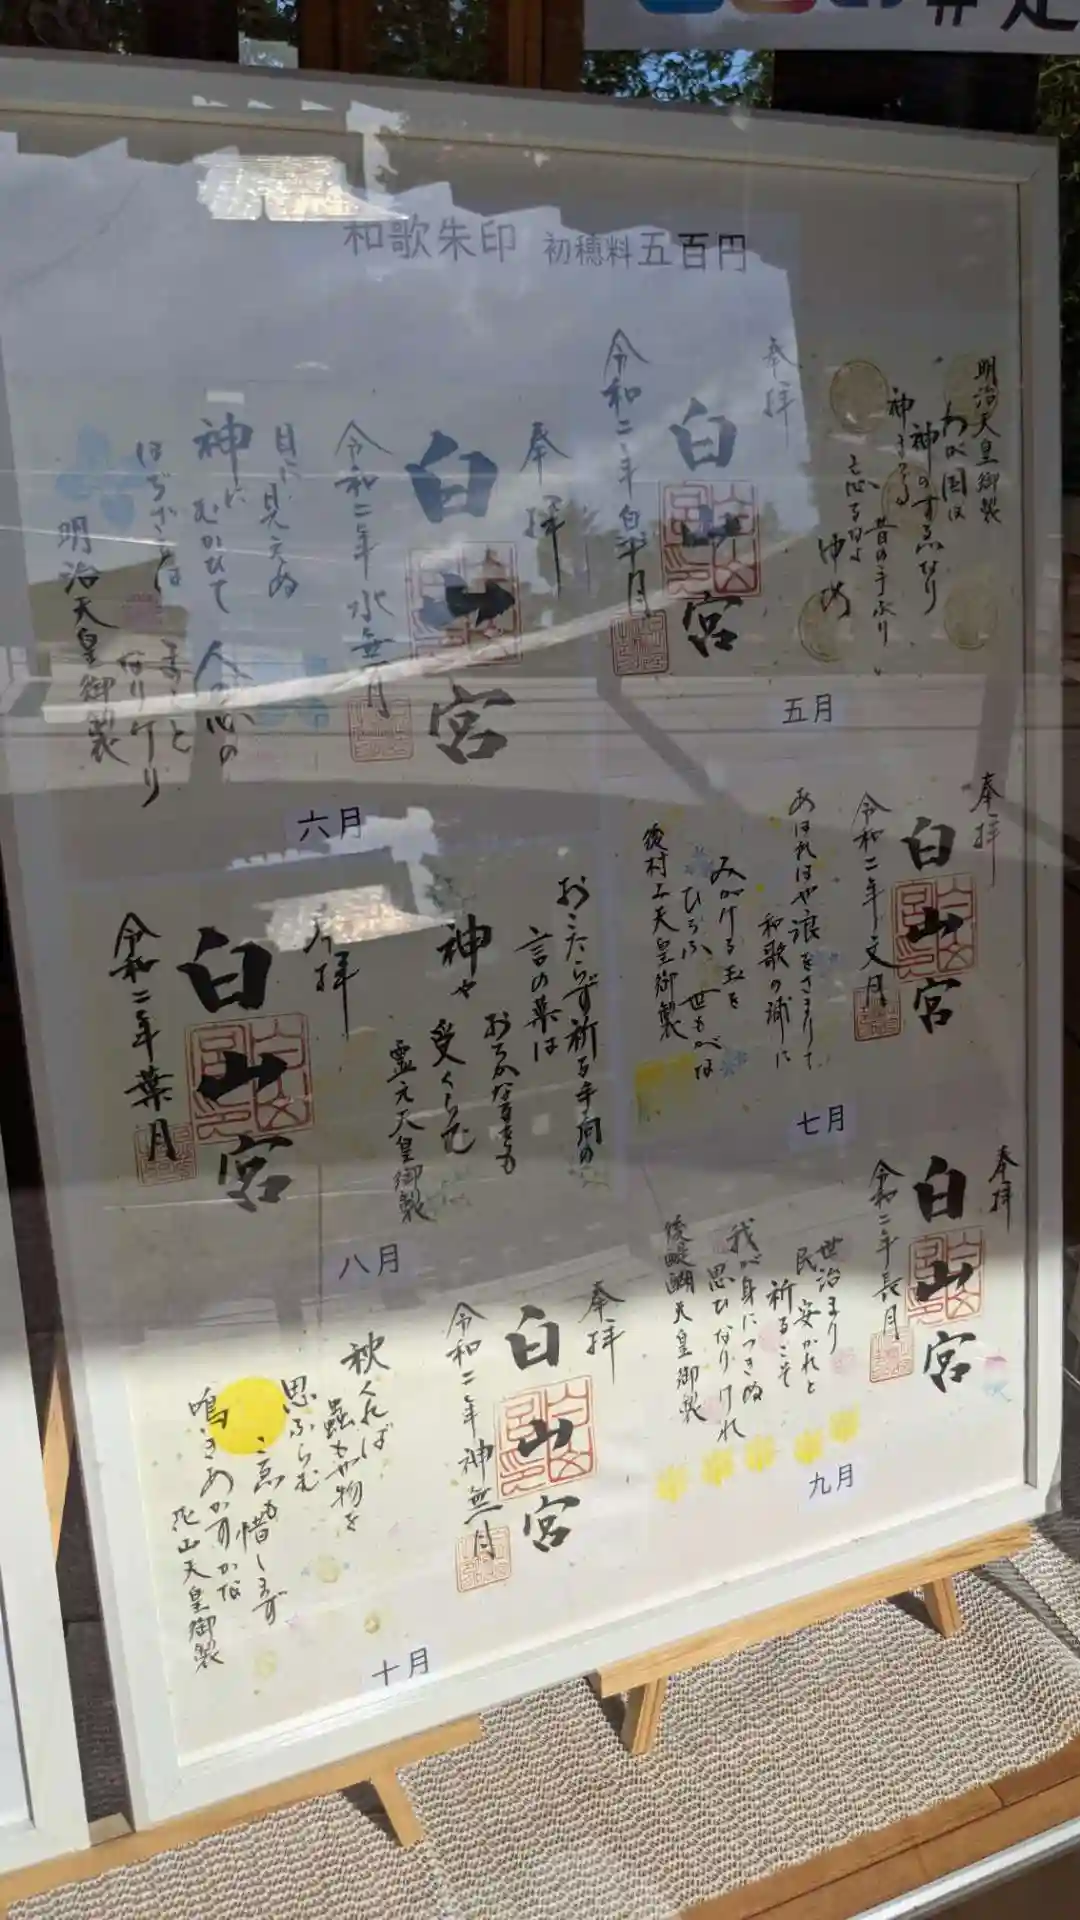 和歌朱印 初穂料 五百円
奉拝
白山宮
令和二年皐月
明治天皇御製
わが国は
神のすゑなり
神まつる
昔の手ぶり
忘るなよ
ゆめ
五月
奉拝
白山宮
令和二年 水無月
目に見えぬ
神に
むかひて
人の心の
まこと
なりけり
明治天皇御製
六月
奉拝
白山宮
令和二年文月
あはれはや浪をさまりて
和歌の浦に
みがける玉を
ひろふ 世もがな
後村上天皇御製
七月
奉拝
白山宮
令和二年葉月
おこたらず祈る手向の
言の葉は
おろかなるをも
神や
受くらむ
霊元天皇御製
八月
奉拝
白山宮
令和二年長月
世治まり
民安かれと
祈るこそ
我が身につきぬ
思ひなりけれ
後醍醐天皇御製
九月
奉拝
白山宮
令和二年神無月
秋くれば
蟲もや物を
思ふらむ
こゑも惜しまず
鳴きあかすかな
花山天皇御製
十月